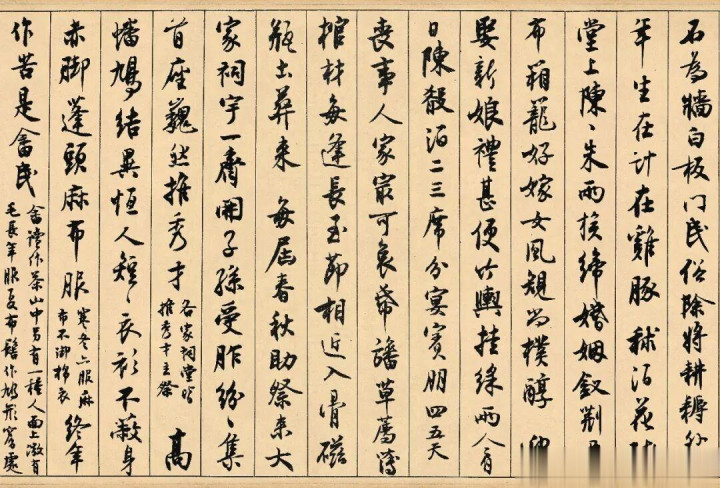 石為牆白板门民俗除將耕耨外
年生在计在雞豚 秫酒花
堂上陳〻朱兩族締婚姻釵釧
布箱籠好嫁女风規尚樸醇
娶新娘禮甚便竹輿挂綵兩人肩
日陳殽酒二三席分宴賓朋四五天
喪事人家最可哀 旛草薦薄
棺材每逢長至節相近入骨磁
瓶土葬来 每届春秋助祭来大
家祠宇一齊開子孫受胙紛〻集
首座巍然推秀才
各家祠堂皆
推秀才主祭
高
蟠鳩結異恒人短〻衣衫不蔽身
赤脚蓬頭麻布服
寒冬亦服麻
布不御棉衣
终年
作苦是畲民
畲讀作茶山中另有一種人面上微有
毛長年服夏布髻作鳩形寄處